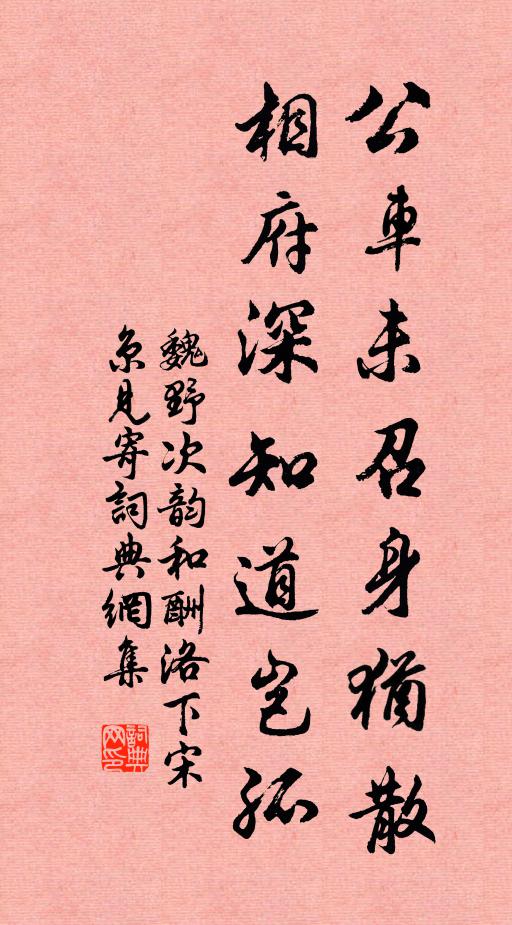 公車未召身猶散
相府深知道豈孤
魏野次韵和酬洛下宋
京見寄詞典網集
詞典網印